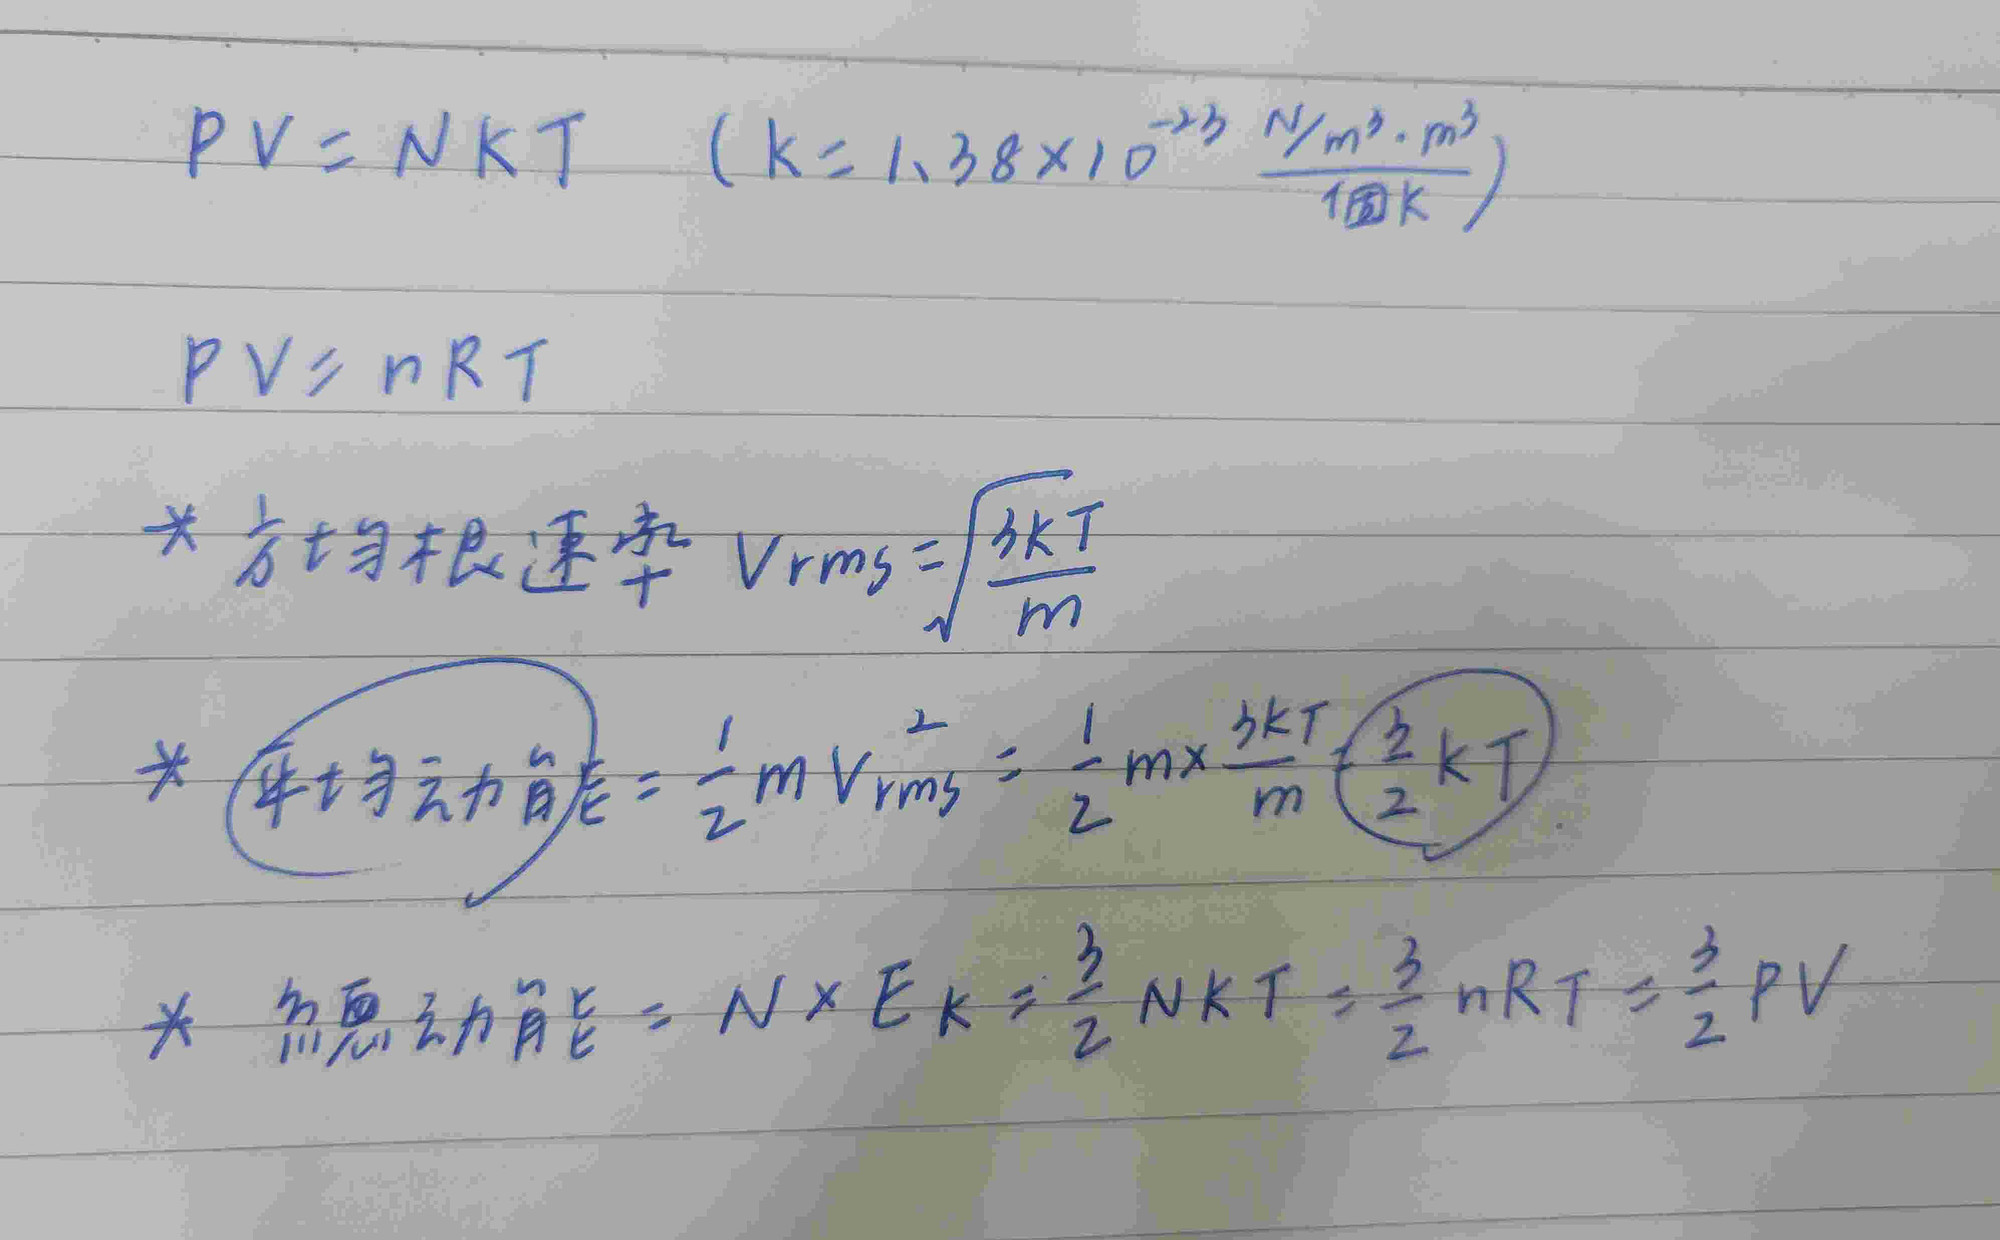 PV = NKT (k = 1.38×10⁻²³ N/m³·m³/個K)
PV = nRT
* 方均根速率 Vrms = √(3kT/m)
* 平均动能 = 1/2 m Vrms² = 1/2 m × 3kT/m = 3/2 kT
* 總动能 = N × EK = 3/2 NKT = 3/2 nRT = 3/2 PV